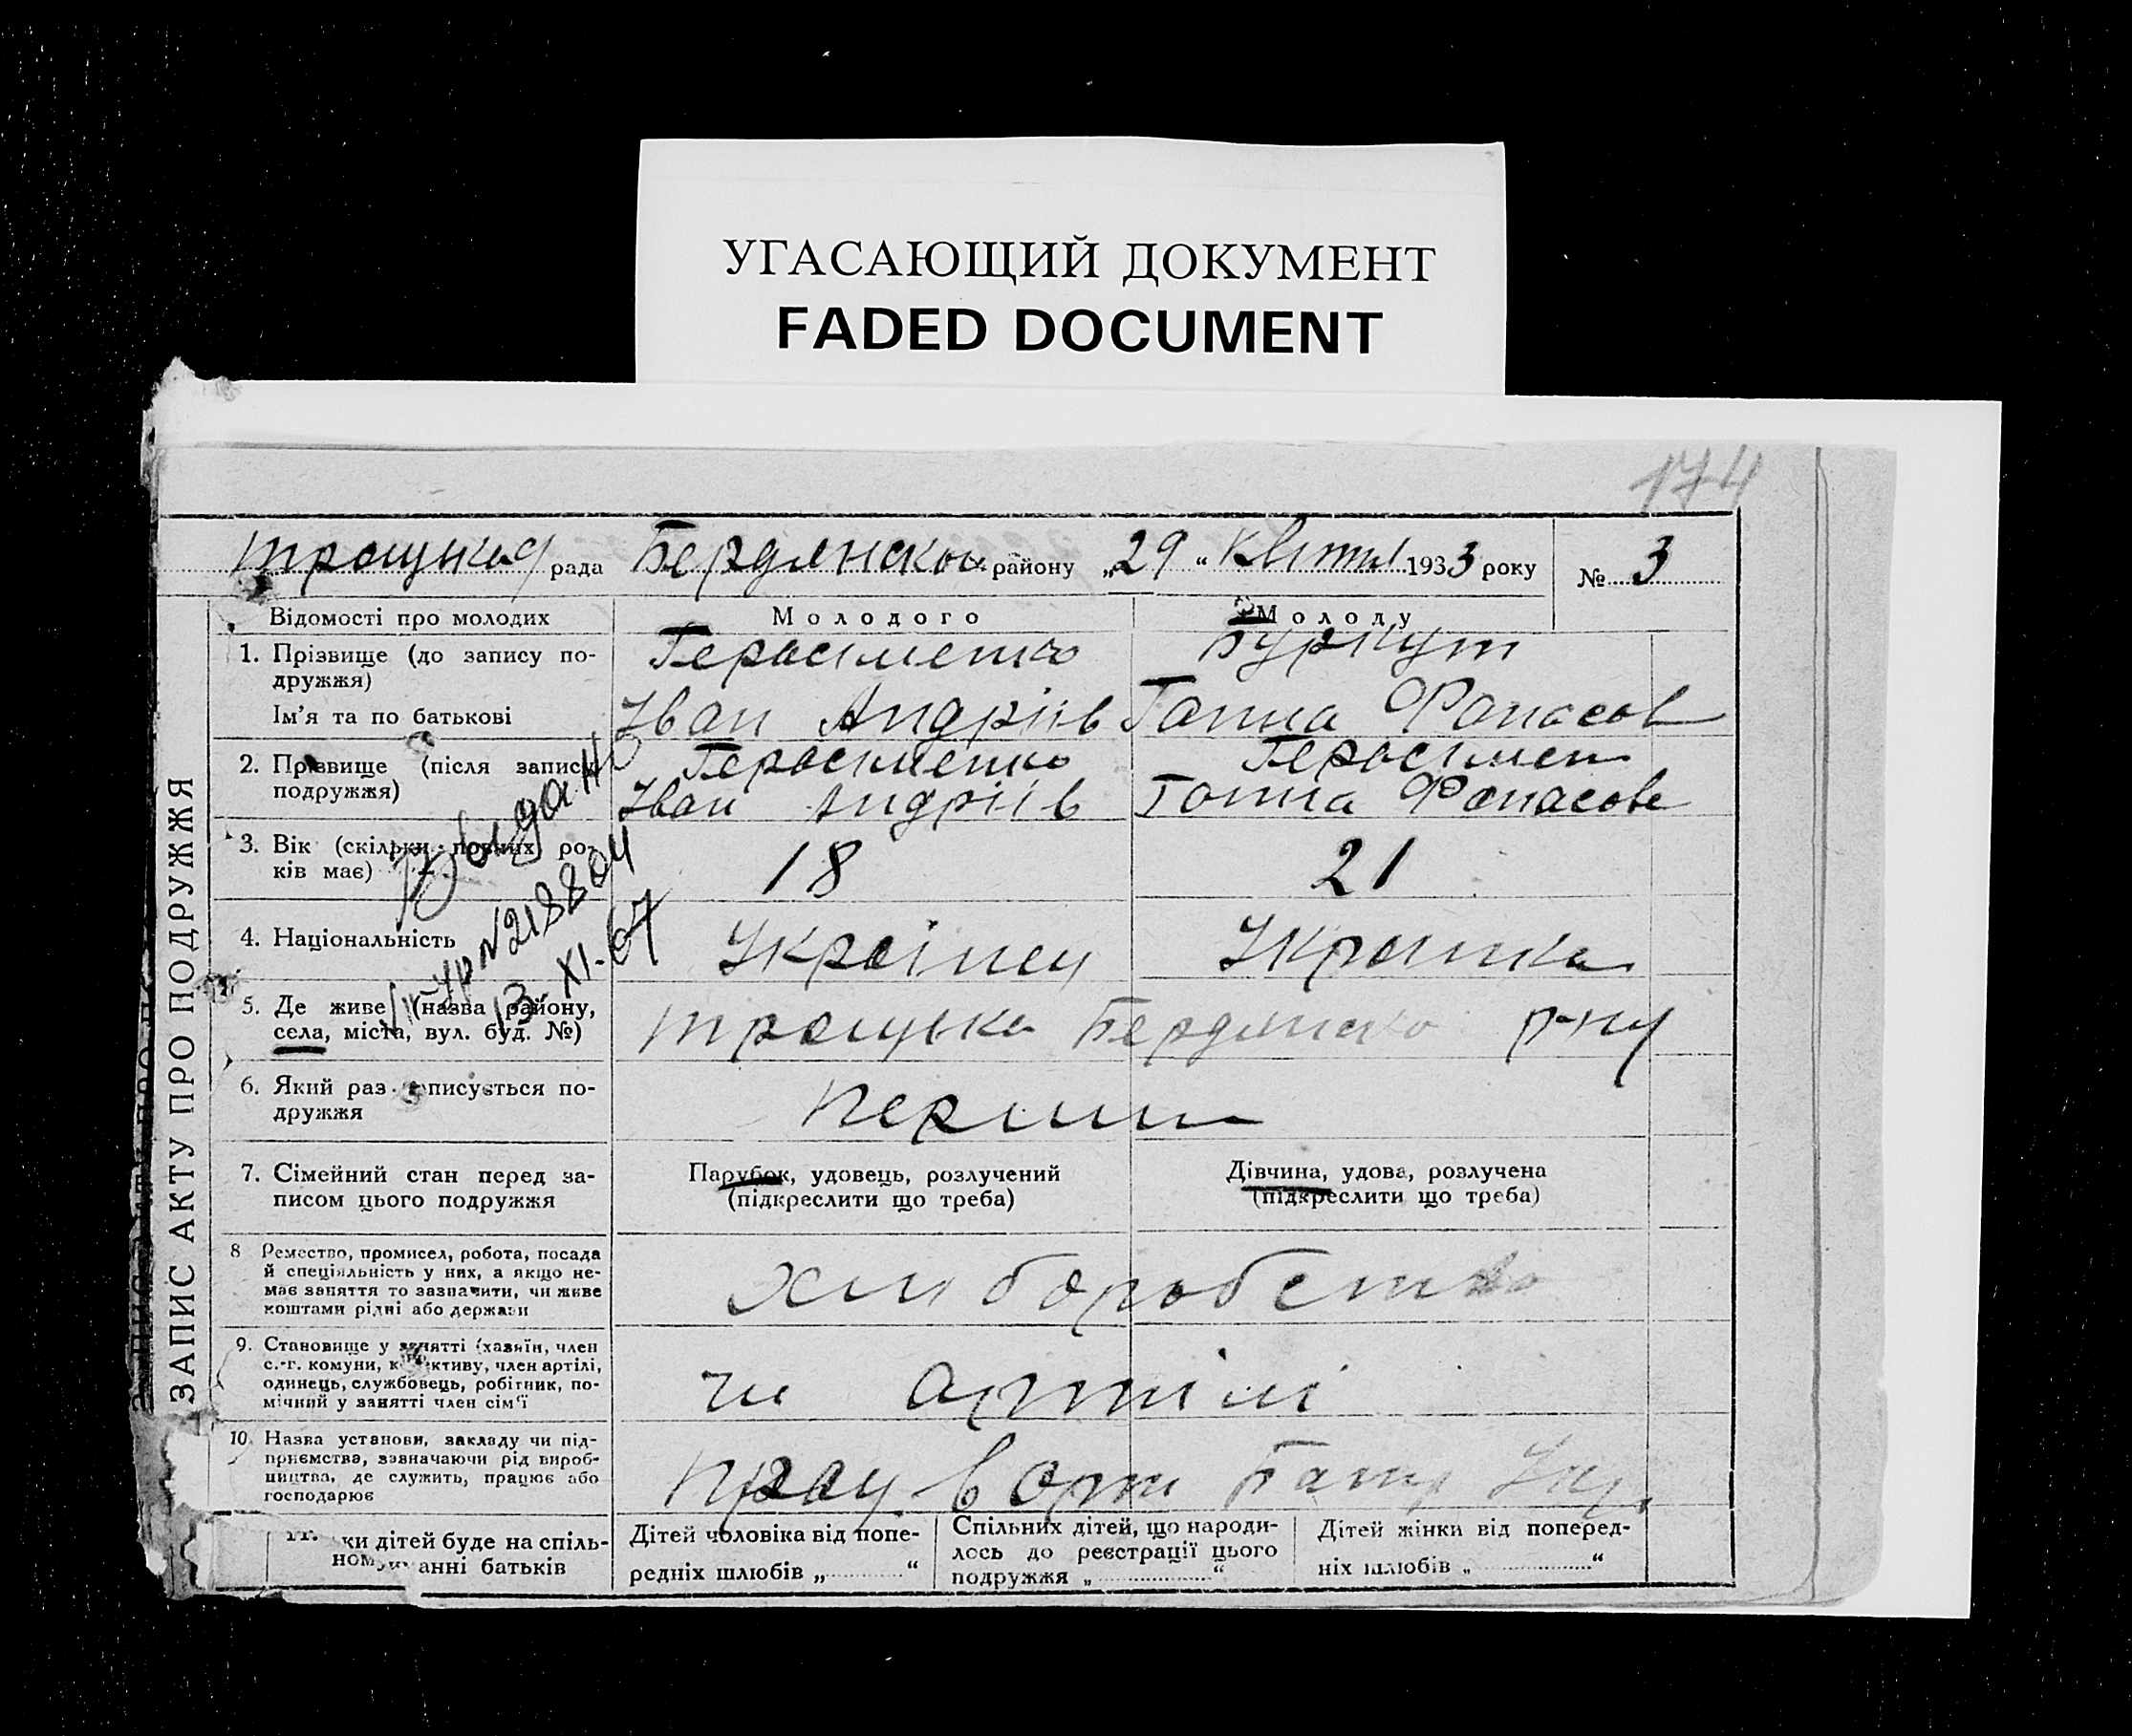 УГАСАЮЩИЙ ДОКУМЕНТ
FADED DOCUMENT
174
Троцька рада Бердянськои району „29“ Квітн 1933 року № 3
ЗАПИС АКТУ ПРО ПОДРУЖЖЯ
Відомості про молодих Молодого Молоду
1. Прізвище (до запису по- Герасименко Буркут
дружжя)
Ім'я та по батькові Іван Андріїв Ганна Фанасов
2. Прізвище (після запису Герасименко Герасимен
подружжя) Іван Андріїв Ганна Фанасов
3. Вік (скільки повних ро- 18 21
ків має)
Выдано
№218804
13-XI-67
4. Національність Українец Українка
5. Де живе (назва району, Троцька Бердянсько р-ну
села, міста, вул. буд. №)
6. Який раз записується по- Перший
дружжя
7. Сімейний стан перед за- Парубок, удовець, розлучений Дівчина, удова, розлучена
писом цього подружжя (підкреслити що треба) (підкреслити що треба)
8 Ремество, промисел, робота, посада
й спеціяльність у них, а якщо не-
має заняття то зазначити, чи живе
коштами рідні або держави
хлиборобство
9. Становище у занятті (хазяїн, член
с.-г. комуни, колективу, член артілі,
одинець, службовець, робітник, по-
мічний у занятті член сім'ї
чл артілі
10. Назва установи, закладу чи під-
приємства, зазначаючи рід вироб-
ництва, де служить, працює або
господарює
Прац в арт
11. ки дітей буде на спіль- Дітей чоловіка від попе- Спільних дітей, що народи- Дітей жінки від поперед-
ном анні батьків редніх шлюбів „ “ лось до реєстрації цього ніх шлюбів „ “
подружжя „ “